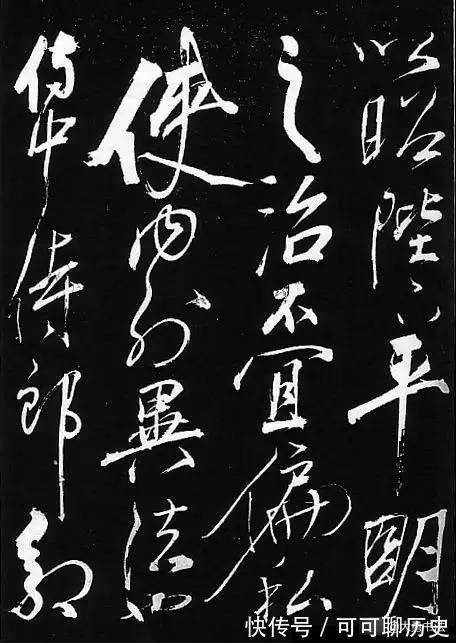 以昭陛下平明
之治不宜偏私
使内外異法也
侍中侍郎郭
快传号 / 可可聊历史